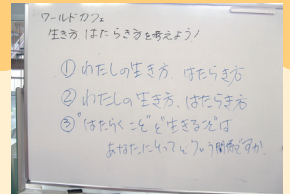 ワールドカフェ
生き方 はたらき方を考えよう!
① わたしの生き方、はたらき方
② わたしの生き方、はたらき方
③ "はたらくこと"と"生きること"は
あなたにとってどういう関係ですか。